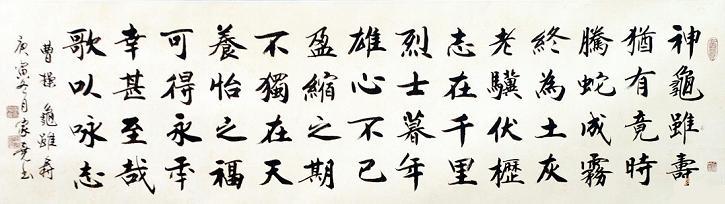 神龜雖壽
猶有竟時
騰蛇成霧
終為土灰
老驥伏櫪
志在千里
烈士暮年
雄心不已
盈縮之期
不獨在天
養怡之福
可得永秊
幸甚至哉
歌以咏志
曹操 龜雖壽
庚寅冬月家